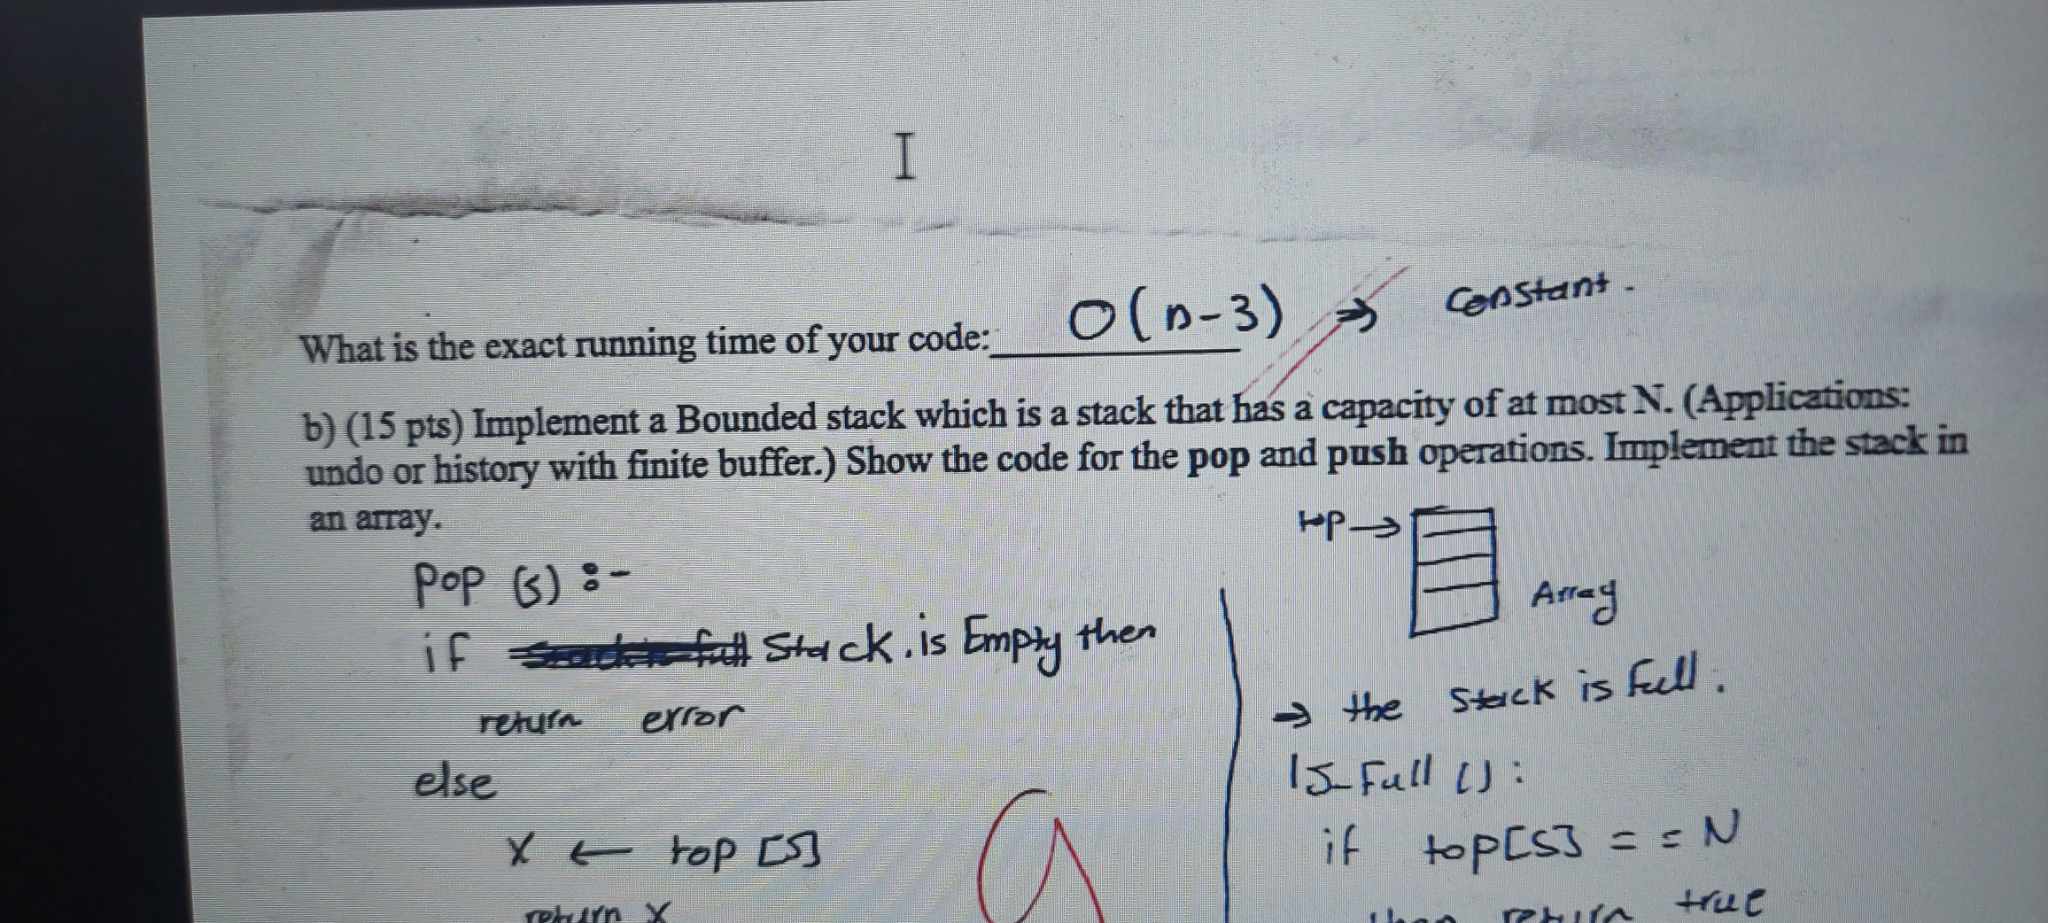 What is the exact running time of your code: O(n-3) ⇒ Constant.
b) (15 pts) Implement a Bounded stack which is a stack that has a capacity of at most N. (Applications:
undo or history with finite buffer.) Show the code for the pop and push operations. Implement the stack in
an array.
top →
Array
Pop (s) :-
if Stack.is Empty then
return error
else
X ← top [S]
return X
→ the Stack is Full.
IS_Full () :
if top[S] == N
then return true